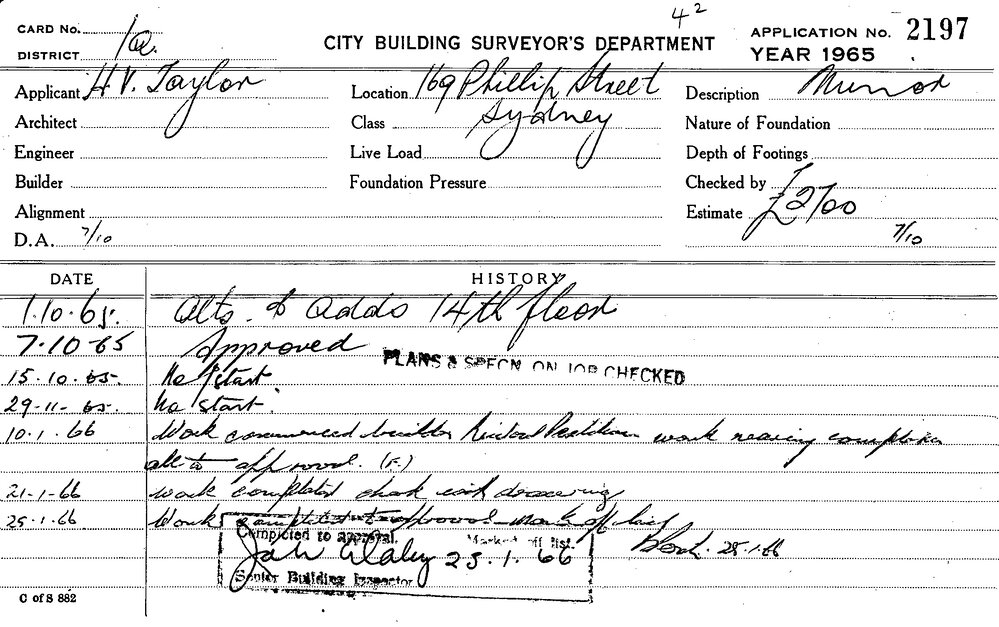 4²
CARD No. 1a.
DISTRICT
CITY BUILDING SURVEYOR'S DEPARTMENT
APPLICATION No. 2197
YEAR 1965
Applicant H V. Taylor
Location 169 Phillip Street
Sydney
Description Minor
Architect
Class
Nature of Foundation
Engineer
Live Load
Depth of Footings
Builder
Foundation Pressure
Checked by
Alignment
Estimate £2700
D.A. 7/10
7/10
DATE HISTORY
1.10.65. Alts. & Adds 14th floor
7.10.65 Approved
PLANS & SPECN. ON JOB CHECKED
15.10.65. No start.
29-11-65. No start.
10.1.66 Work commenced builder work nearing completion
all to approval. (F.)
21-1-66 Work completed check
25.1.66. Work completed to approval mark off
25.1.66
Completed to approval. Marked off list.
25.1.66
Senior Building Inspector
C of S 882